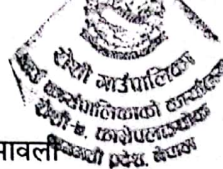 रोशी गाउँपालिका
गाउँ कार्यपालिकाको कार्यालय
रोशी-७, काभ्रेपलाञ्चोक
बागमती प्रदेश, नेपाल